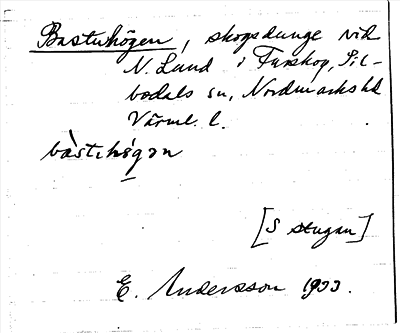 Bastuhögen, skogsdunge vid
N. Lund i Furskog, Sil-
bodals sn, Nordmarks hd
Värml. l.
bàstuhö́gən
[S stugan]
E. Andersson 1933.